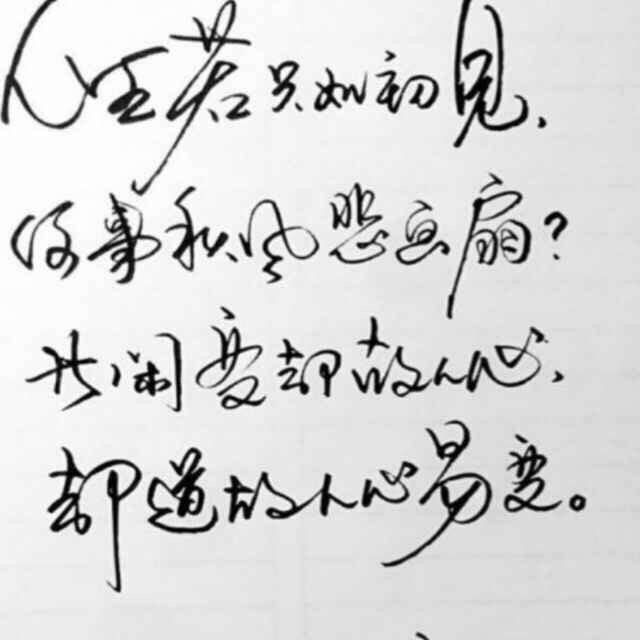 人生若只如初见，
何事秋风悲画扇？
等闲变却故人心，
却道故人心易变。